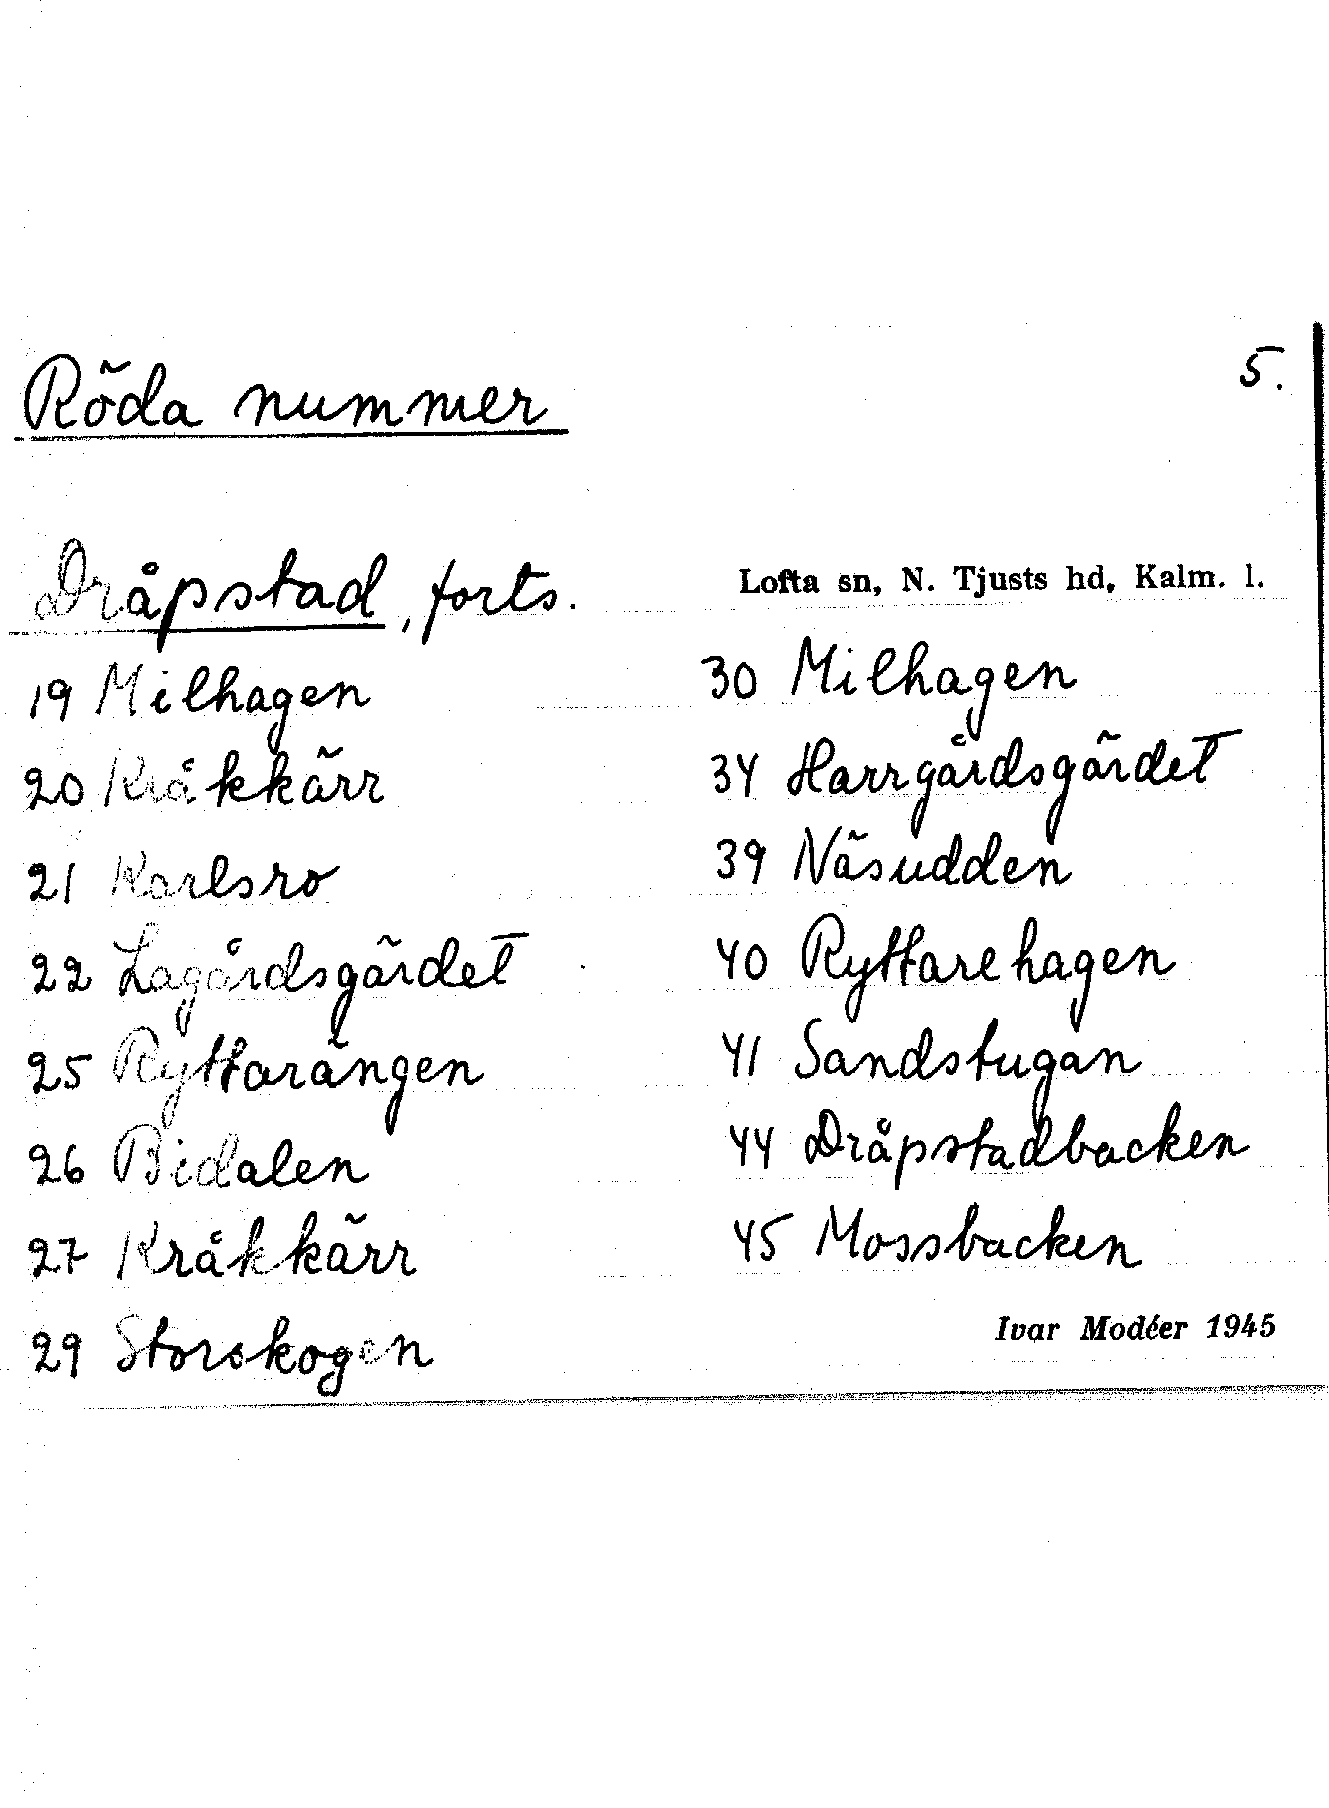 5.
Röda nummer
Dråpstad, forts.
Lofta sn, N. Tjusts hd, Kalm. l.
19 Milhagen
20 Kråkkärr
21 Karlsro
22 Lagårdsgärdet
25 Ryttarängen
26 Bidalen
27 Kråkkärr
29 Storskogen
30 Milhagen
34 Harrgårdsgärdet
39 Näsudden
40 Ryttarehagen
41 Sandstugan
44 Dråpstadbacken
45 Mossbacken
Ivar Modéer 1945